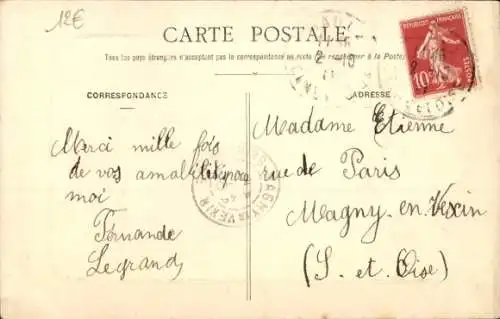 12€
CARTE POSTALE
Tous les pays étrangers n'acceptent pas la correspondance au recto (se renseigner à la Poste)
RÉPUBLIQUE FRANÇAISE
10
POSTES
CORRESPONDANCE
ADRESSE
Merci mille fois
de vos amabilités pour
moi
Fernande
Legrand
Madame Etienne
rue de Paris
Magny-en-Vexin
(S. et. Oise)
MAGNY-EN-VEXIN